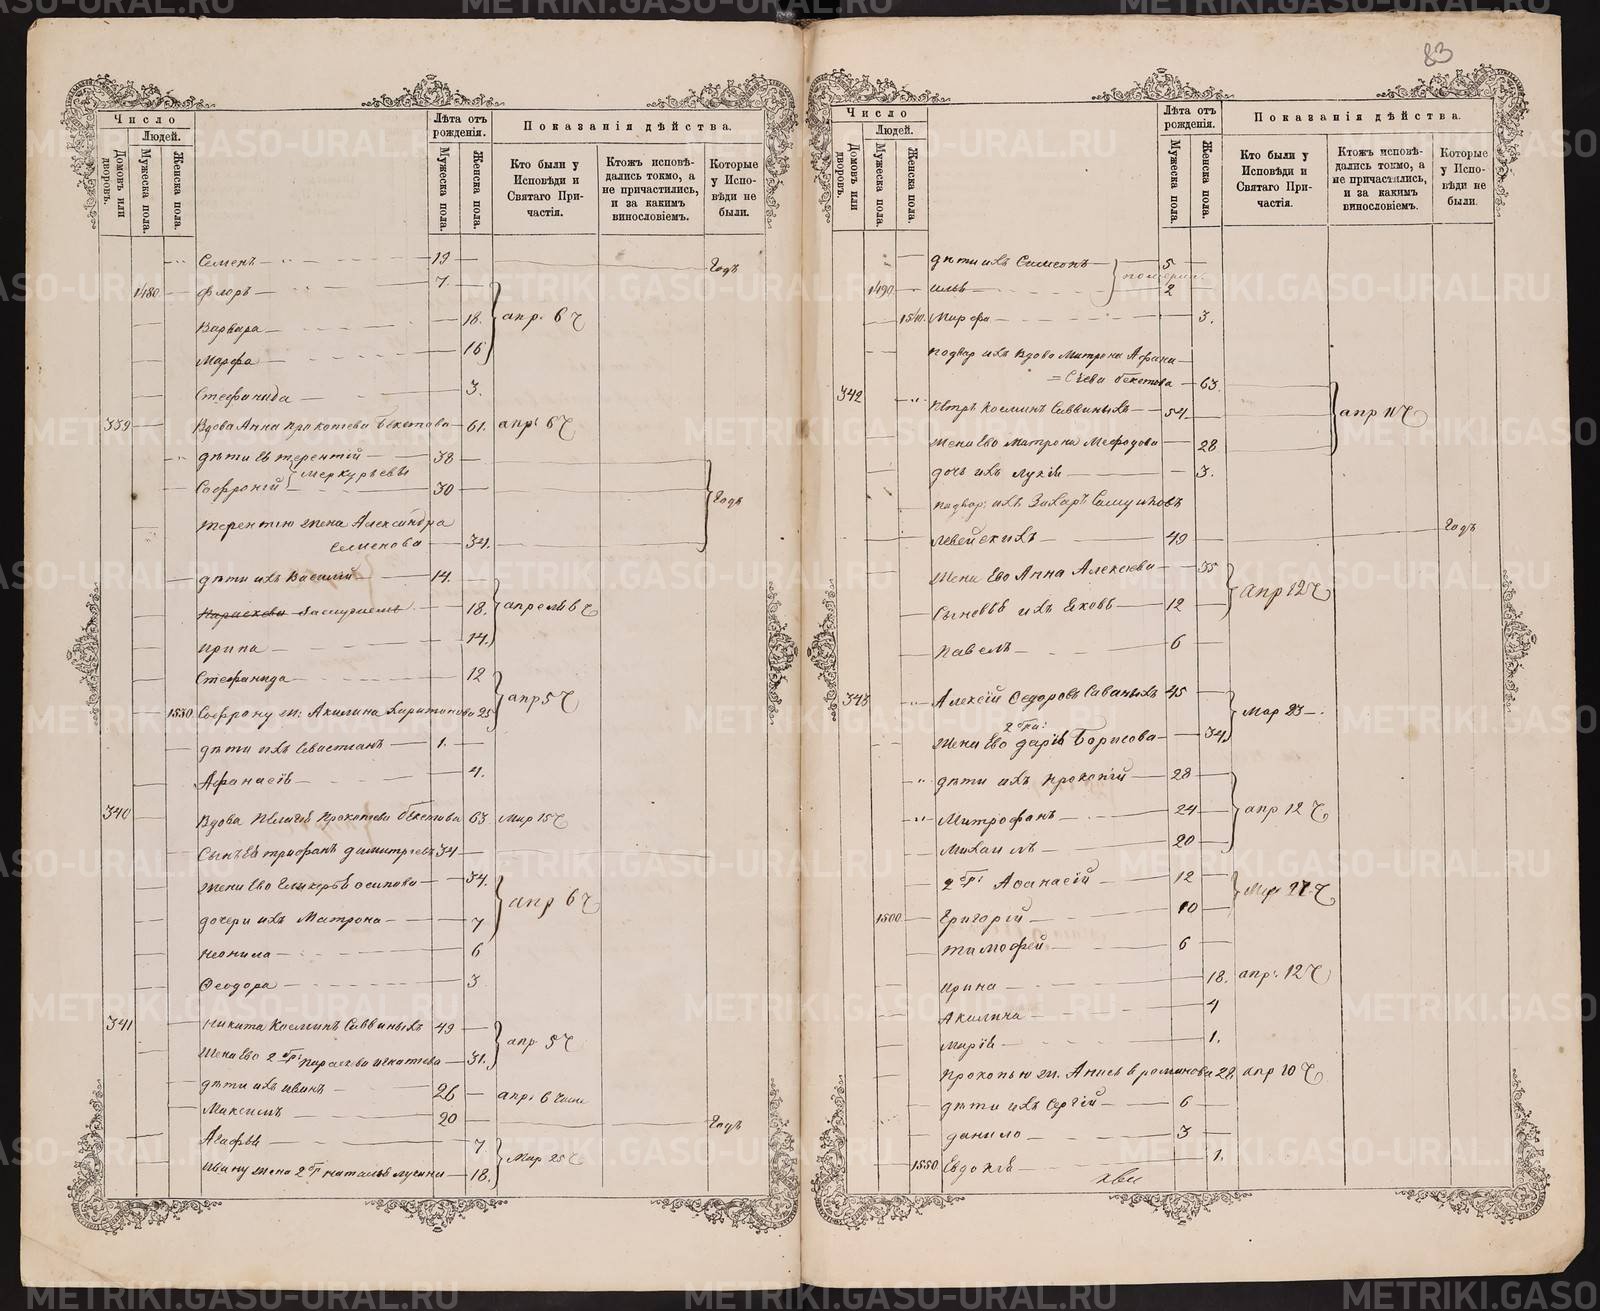 83
Число
Людей.
Домовъ или дворовъ.
Мужеска пола.
Женска пола.
Лѣта отъ рожденія.
Мужеска пола.
Женска пола.
Показанія дѣйства.
Кто были у Исповѣди и Святаго Причастія.
Ктожъ исповѣдались токмо, а не причастились, и за какимъ винословіемъ.
Которые у Исповѣди не были.
Семенъ 19 Годъ
1480 Флоръ 7.
Варвара 18. апр. 6 Ч
Марфа 16
Стефанида 3.
339 Вдова Анна Прокопьева Бекетова 61. апр. 6 Ч
дѣти ея Терентій 38
Меркурьевы
Софроній 30 Годъ
Терентію жена Александра
Семенова 34.
дѣти ихъ Василій 14.
18. апреля 6 Ч
Ирина 14.
Стефанида 12
апр 5 Ч
1530 Софрону ж: Акилина Харитонова 25
дѣти ихъ Севастіанъ 1.
Афанасія 4.
340 Вдова Пелагея Прокопьева Бекетова 63 Мар 15 Ч
Сынъ ея Трифанъ Димитріевъ 34
Жена Ево Гликерья Осипова 34.
апр 6 Ч
дочери ихъ Матрона 7
Неонила 6
Феодора 3
341 Никита Косминъ Саввиныхъ 49
апр 5 Ч
Жена Ево 2 бр: Параскева Игнатьева 31.
дѣти ихъ Иванъ 26 апр: 6
Максимъ 20 Годъ
Агафья 7
Мар 25 Ч
Ивану жена 2 бр Наталья 18.
Число
Людей.
Домовъ или дворовъ.
Мужеска пола.
Женска пола.
Лѣта отъ рожденія.
Мужеска пола.
Женска пола.
Показанія дѣйства.
Кто были у Исповѣди и Святаго Причастія.
Ктожъ исповѣдались токмо, а не причастились, и за какимъ винословіемъ.
Которые у Исповѣди не были.
дѣти ихъ Симеонъ 5
1490 Илья 2
1540. Марфа 3.
подвор ихъ Вдова Матрона Афана=
=сьева Бекетова 63.
342 Петръ Косминъ Саввиныхъ 54. апр 11 Ч
Жена Ево Матрона Мефодова 28
дочь ихъ Лукія 3.
подвор: ихъ Захаръ
49 Годъ
Жена Ево Анна Алексеева 35
апр 12 Ч
Сыновья ихъ Яковъ 12
Павелъ 6
343 Алексій Федоровъ Саваныхъ 45
Мар 23
2 бра:
Жена Ево Дарья Борисова 34.
дѣти ихъ Прокопій 28
Митрофанъ 24 апр 12 Ч
Михаилъ 20
2 бр: Афанасій 12
Мар 27 Ч
1500 Григорій 10
Тимофей 6
Ирина 18. апр: 12 Ч
Акилина 4
Марія 1.
Прокопью ж. Анисья Романова 28 апр 10 Ч
дѣти ихъ Сергій 6
Данило 3
1550 Евдокія 1.
METRIKI.GASO-URAL.RU